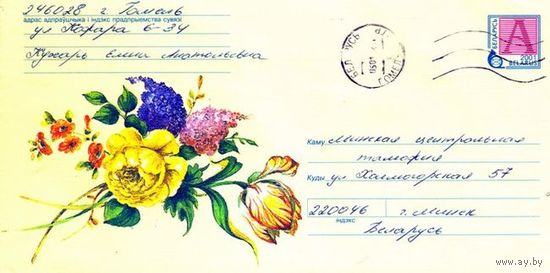 246028 г. Гомель
адрас адпраўшчыка і індэкс прадпрыемства сувязі
ул Кожара 6-34
Кухарь Елена Анатольевна
БЕЛАРУСЬ
ГОМЕЛЬ
БЕЛАРУСЬ
А
2001
BELARUS
Каму Минская центральная
таможня
Куды ул Холмогорская 57
220046 г. Минск
індэкс
Беларусь
www.ay.by